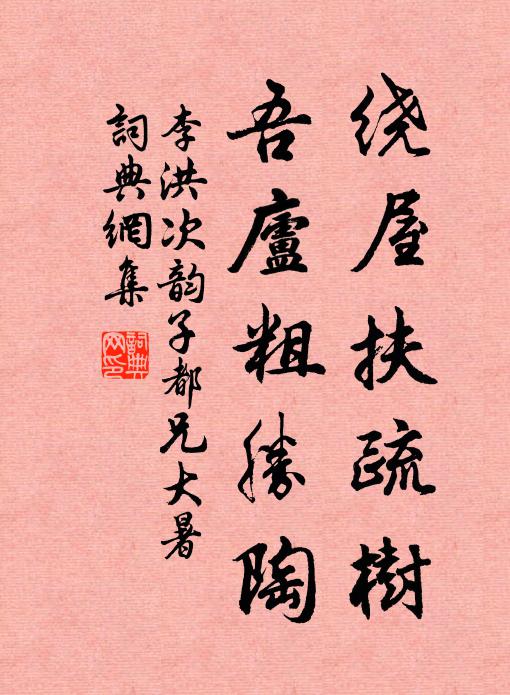 绕屋扶疏樹
吾廬粗勝陶
李洪次韵子都兄大暑
詞典網集
詞典网印